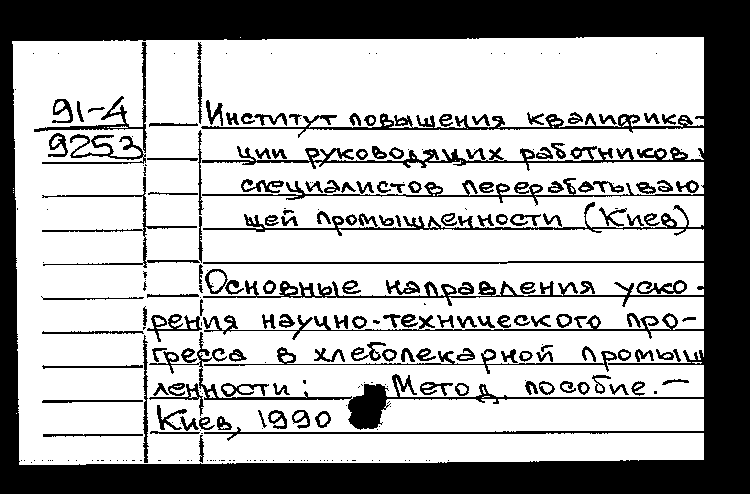 91-4
9253
Институт повышения квалифика-
ции руководящих работников и
специалистов перерабатываю-
щей промышленности (Киев).
Основные направления уско-
рения научно-технического про-
гресса в хлебопекарной промыш
ленности: Метод. пособие.—
Киев, 1990